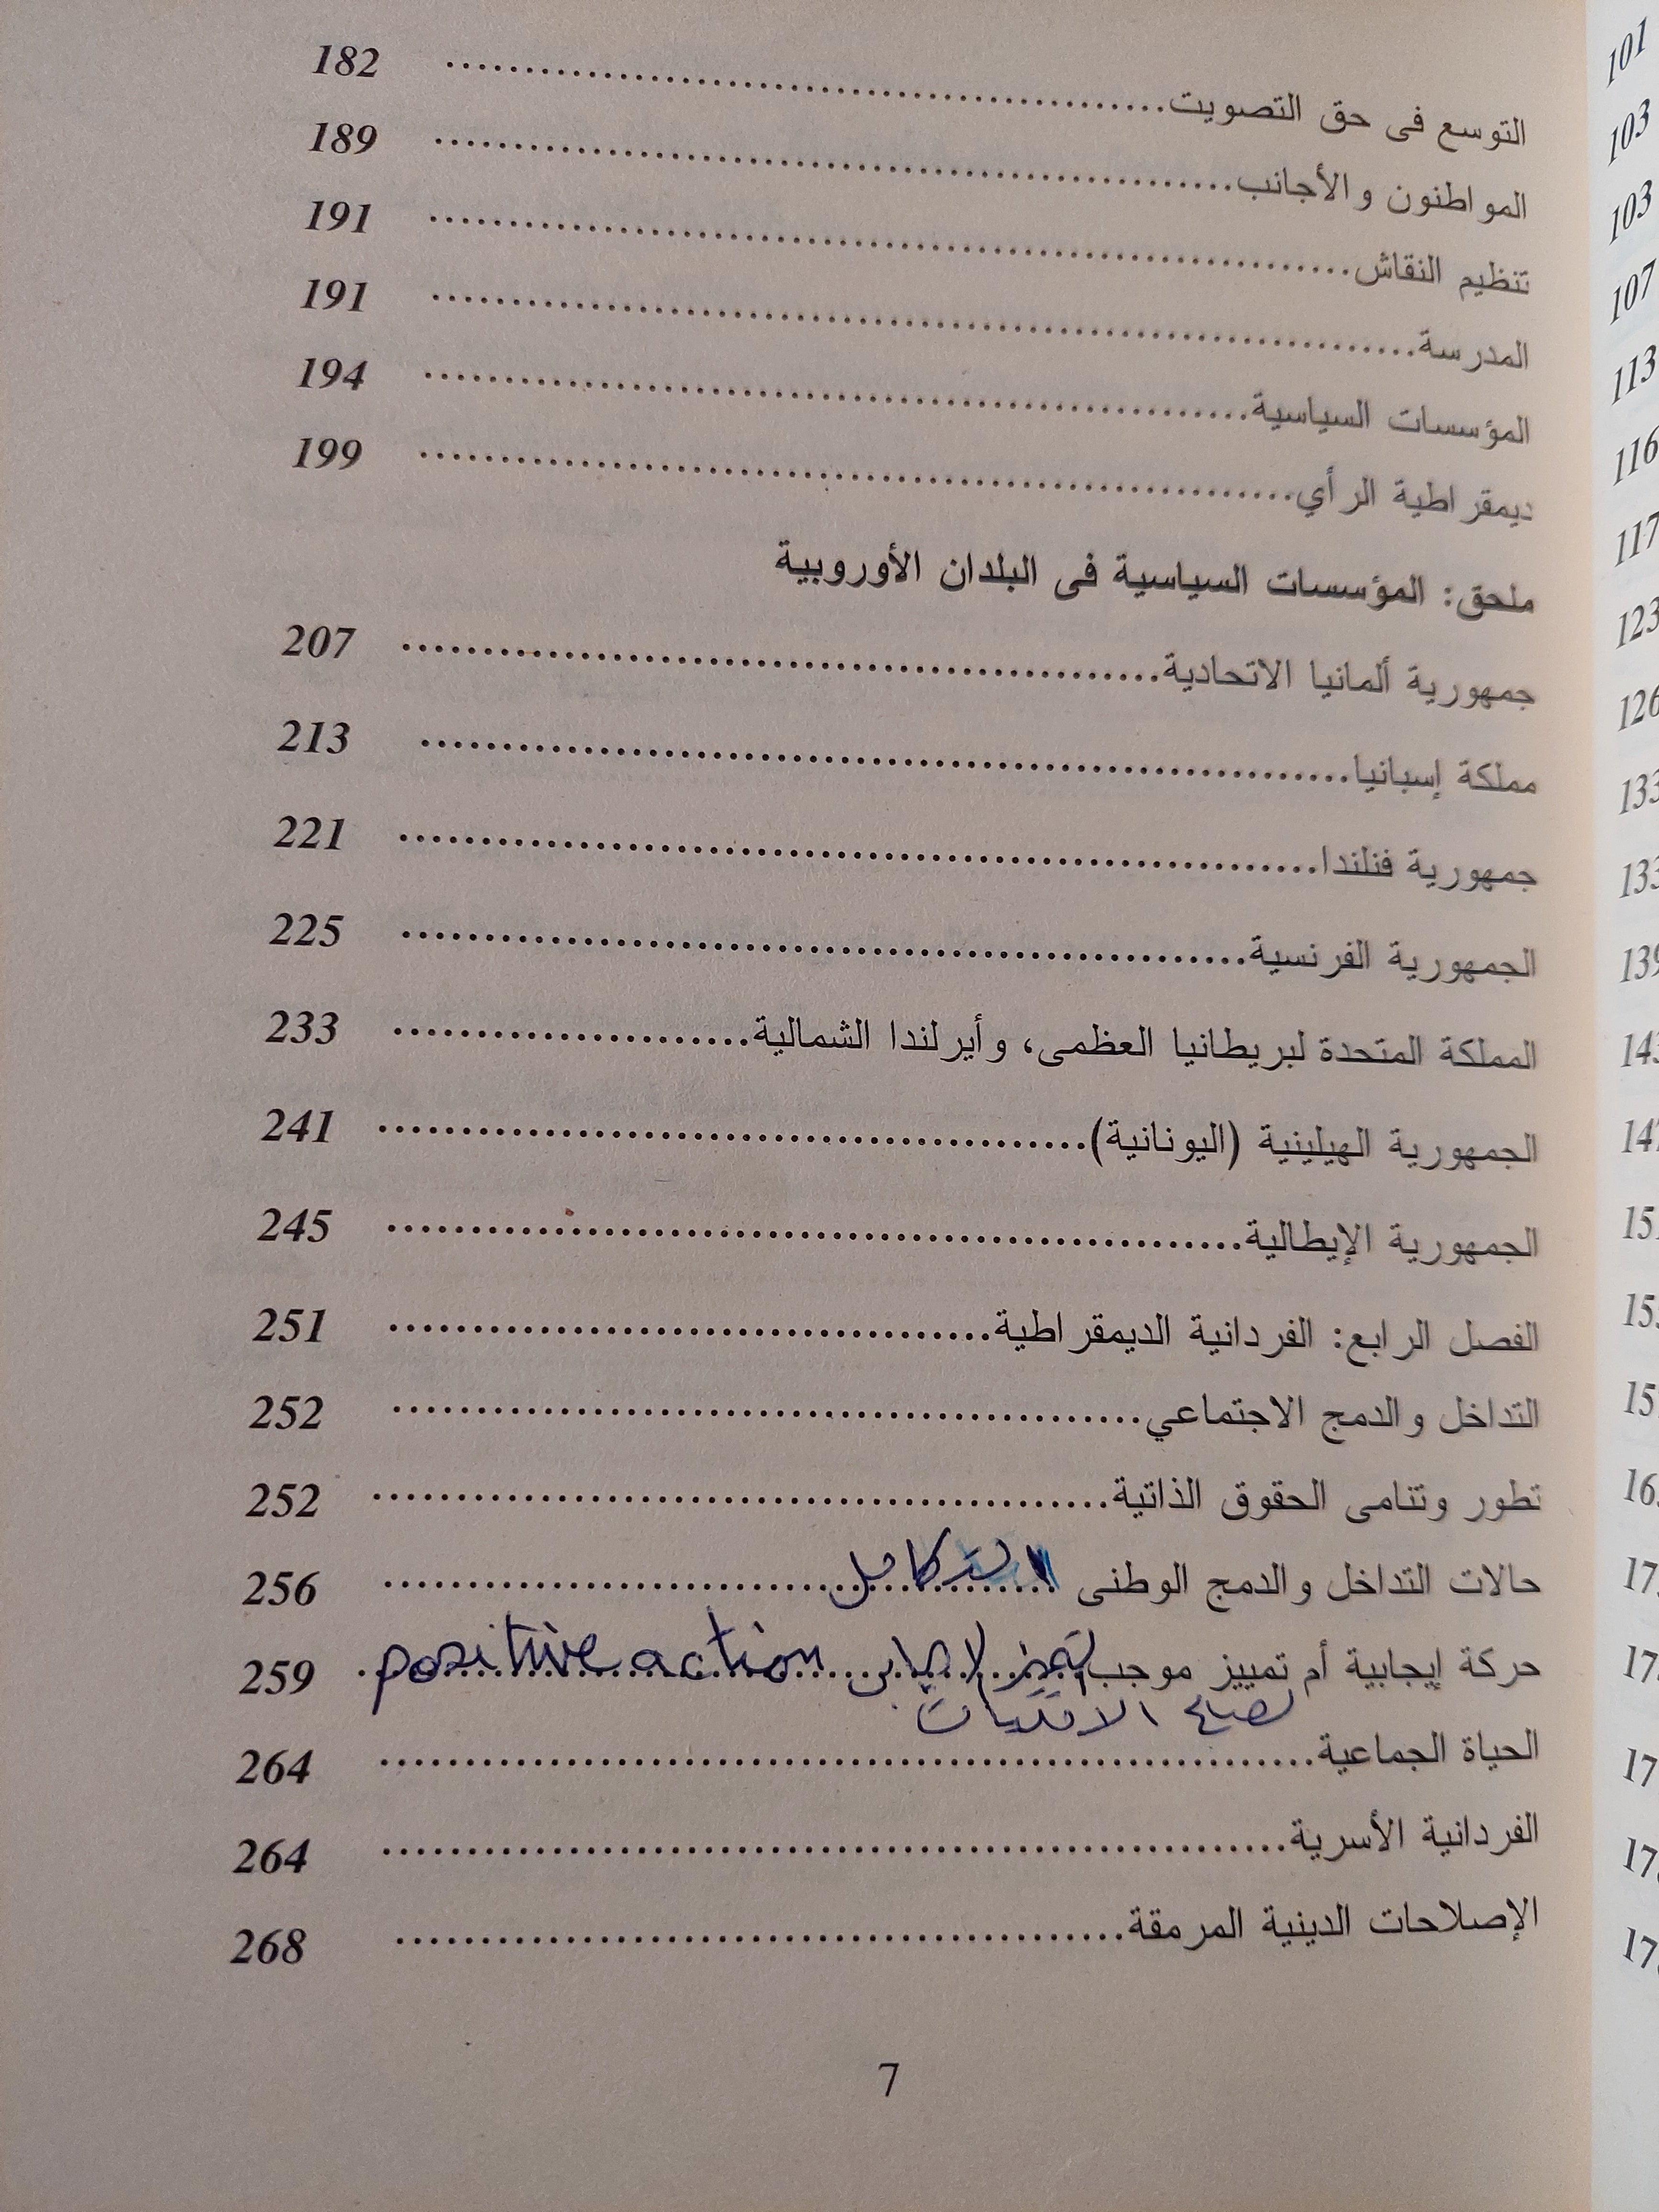 التوسع فى حق التصويت 182
المواطنون والأجانب 189
تنظيم النقاش 191
المدرسة 191
المؤسسات السياسية 194
ديمقراطية الرأي 199
ملحق: المؤسسات السياسية فى البلدان الأوروبية
جمهورية ألمانيا الاتحادية 207
مملكة إسبانيا 213
جمهورية فنلندا 221
الجمهورية الفرنسية 225
المملكة المتحدة لبريطانيا العظمى، وأيرلندا الشمالية 233
الجمهورية الهيلينية (اليونانية) 241
الجمهورية الإيطالية 245
الفصل الرابع: الفردانية الديمقراطية 251
التداخل والدمج الاجتماعي 252
تطور وتنامى الحقوق الذاتية 252
حالات التداخل والدمج الوطنى 256
حركة إيجابية أم تمييز موجب تميز إيجابى positive action 259
لصالح الاقليات
الحياة الجماعية 264
الفردانية الأسرية 264
الإصلاحات الدينية المرمقة 268
7
101
103
103
107
113
116
117
123
126
133
133